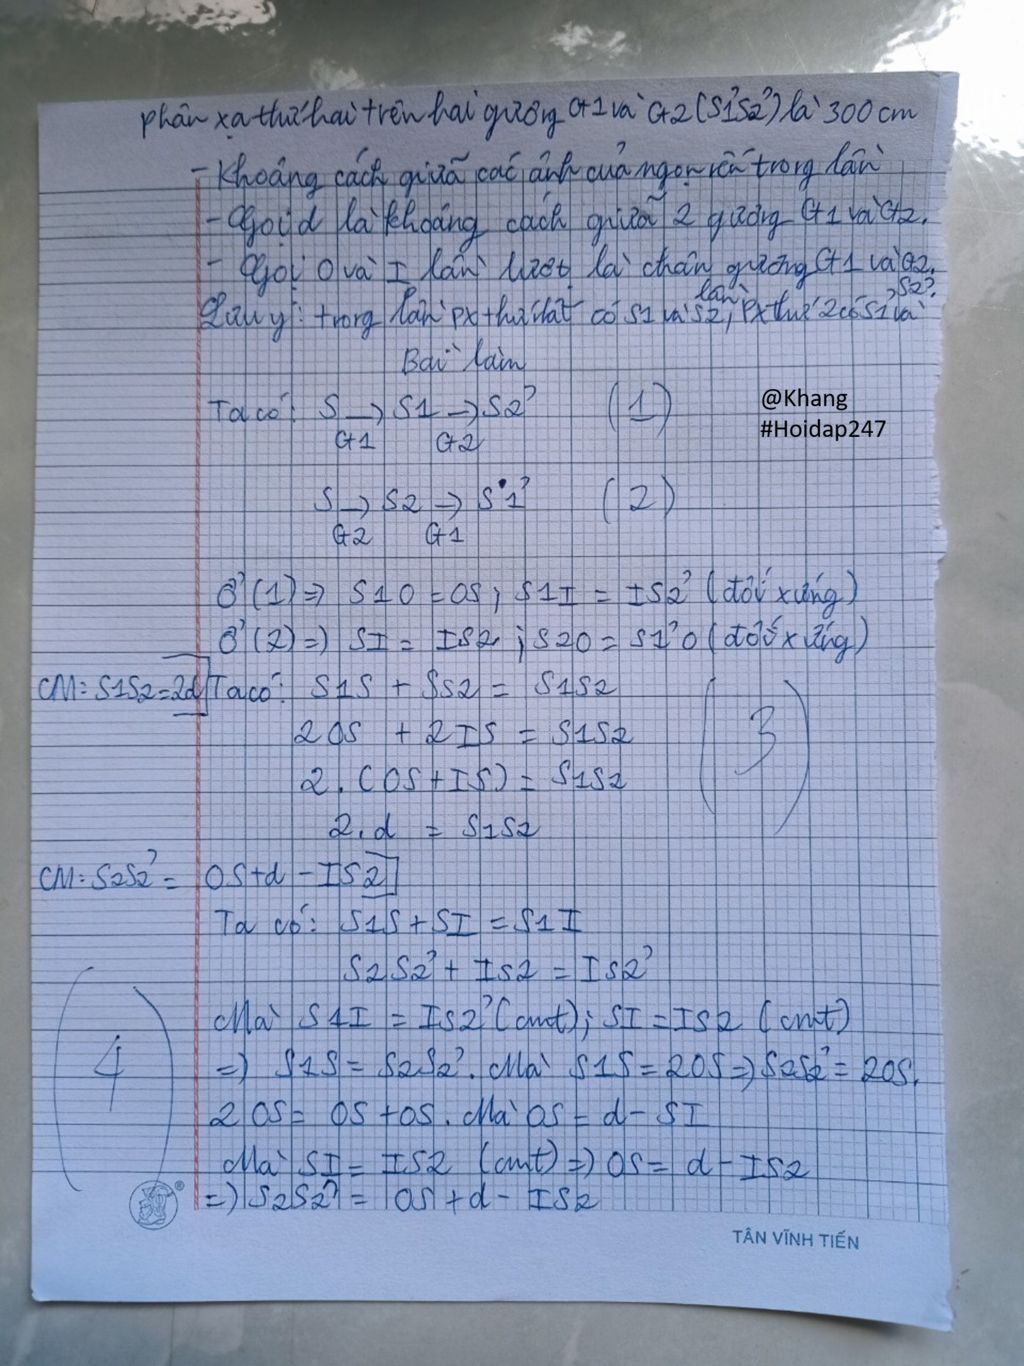 phản xạ thứ hai trên hai gương G1 và G2 (S1'S2') là 300 cm
- Khoảng cách giữa các ảnh của ngọn nến trong lần
- Gọi d là khoảng cách giữa 2 gương G1 và G2.
- Gọi O và I lần lượt là chân gương G1 và G2.
Lưu ý: trong lần px thứ nất có S1 và S2, lần px thứ 2 có S1' và S2'.
Bài làm
Ta có: S → S1 → S2' (1)
G1 G2
@Khang
#Hoidap247
S → S2 → S1' (2)
G2 G1
Ở (1) => S1O = OS; S1I = IS2' (đối xứng)
Ở (2) => SI = IS2; S2O = S1'O (đối xứng)
CM: S1S2 = 2d Ta có: S1S + SS2 = S1S2
2OS + 2IS = S1S2 (3)
2.(OS+IS) = S1S2
2.d = S1S2
CM: S2S2' = OS+d - IS2
Ta có: S1S + SI = S1I
S2S2' + IS2 = IS2'
Mà S1I = IS2' (cmt); SI = IS2 (cmt)
(4) => S1S = S2S2'. Mà S1S = 2OS => S2S2' = 2OS.
2OS = OS + OS. Mà OS = d - SI
Mà SI = IS2 (cmt) => OS = d - IS2
=> S2S2' = OS + d - IS2
®
TÂN VĨNH TIẾN